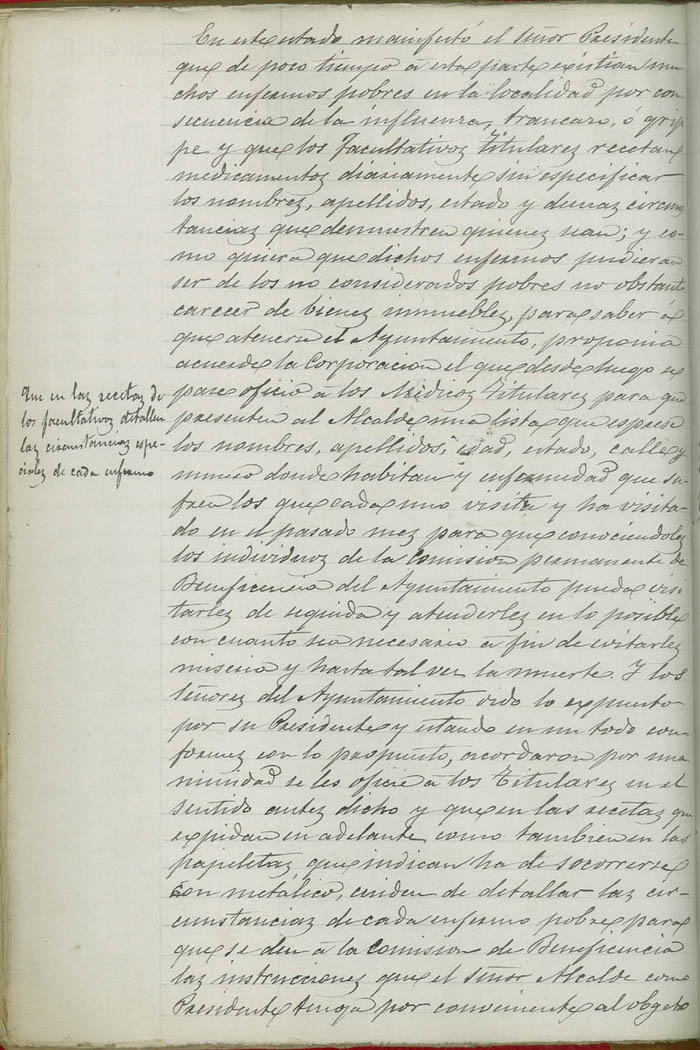 En este estado manifestó el Señor Presidente
que de poco tiempo á esta parte existian mu
chos enfermos pobres en la localidad por con
secuencia de la influenza, trancazo, ó grip
pe y que los Facultativos Titulares recetan
medicamentos diariamente sin especificar
los nombres, apellidos, estado y demas circuns
tancias que demuestren quienes sean; y co-
mo quiera que dichos enfermos pudieran
ser de los no considerados pobres no obstante
carecer de bienes inmuebles, para saber á
que atenerse el Ayuntamiento, proponia
acuerde la Corporacion el que desde luego se
pase oficio á los Médicos Titulares para que
presenten al Alcalde una lista que esprese
los nombres, apellidos, edad, estado, calle y
número donde habitan y enfermedad que su-
fren los que cada uno visita y ha visita-
do en el pasado mes para que conociendoles
los individuos de la Comision permanente de
Beneficencia del Ayuntamiento pueda visi
tarles de seguida y atenderles en lo posible
con cuanto sea necesario á fin de evitarles
miseria y hasta tal vez la muerte. Y los
Señores del Ayuntamiento oido lo expuesto
por su Presidente y estando en un todo con-
formes con lo propuesto, acordaron por una
nimidad se les oficie á los Titulares en el
sentido antes dicho y que en las recetas que
expidan en adelante como tambien en las
papeletas que indican ha de socorrerse
con metálico, cuiden de detallar las cir-
cunstancias de cada enfermo pobre para
que se den á la Comision de Beneficencia
las instrucciones que el Señor Alcalde como
Presidente tenga por conveniente al obgeto
Que en las recetas de
los facultativos detallen
las circunstancias espe-
ciales de cada enfermo